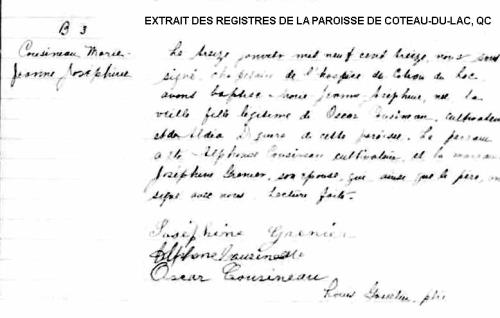 EXTRAIT DES REGISTRES DE LA PAROISSE DE COTEAU-DU-LAC, QC
B 3
Cousineau Marie-
Jeanne Joséphine
Le treize janvier mil neuf cent treize, nous sous
signé, chapelain de l'hospice de Coteau du Lac
avons baptisé Marie Jeanne Joséphine, née la
veille fille légitime de Oscar Cousineau, cultivateur
et de Aldéa de cette paroisse. Le parrain
a été Alphonse Cousineau cultivateur, et la marraine
Joséphine Grenier, son épouse, qui ainsi que le père, on
signé avec nous. Lecture faite.
Joséphine Grenier
Alphonse Cousineau
Oscar Cousineau
ptre